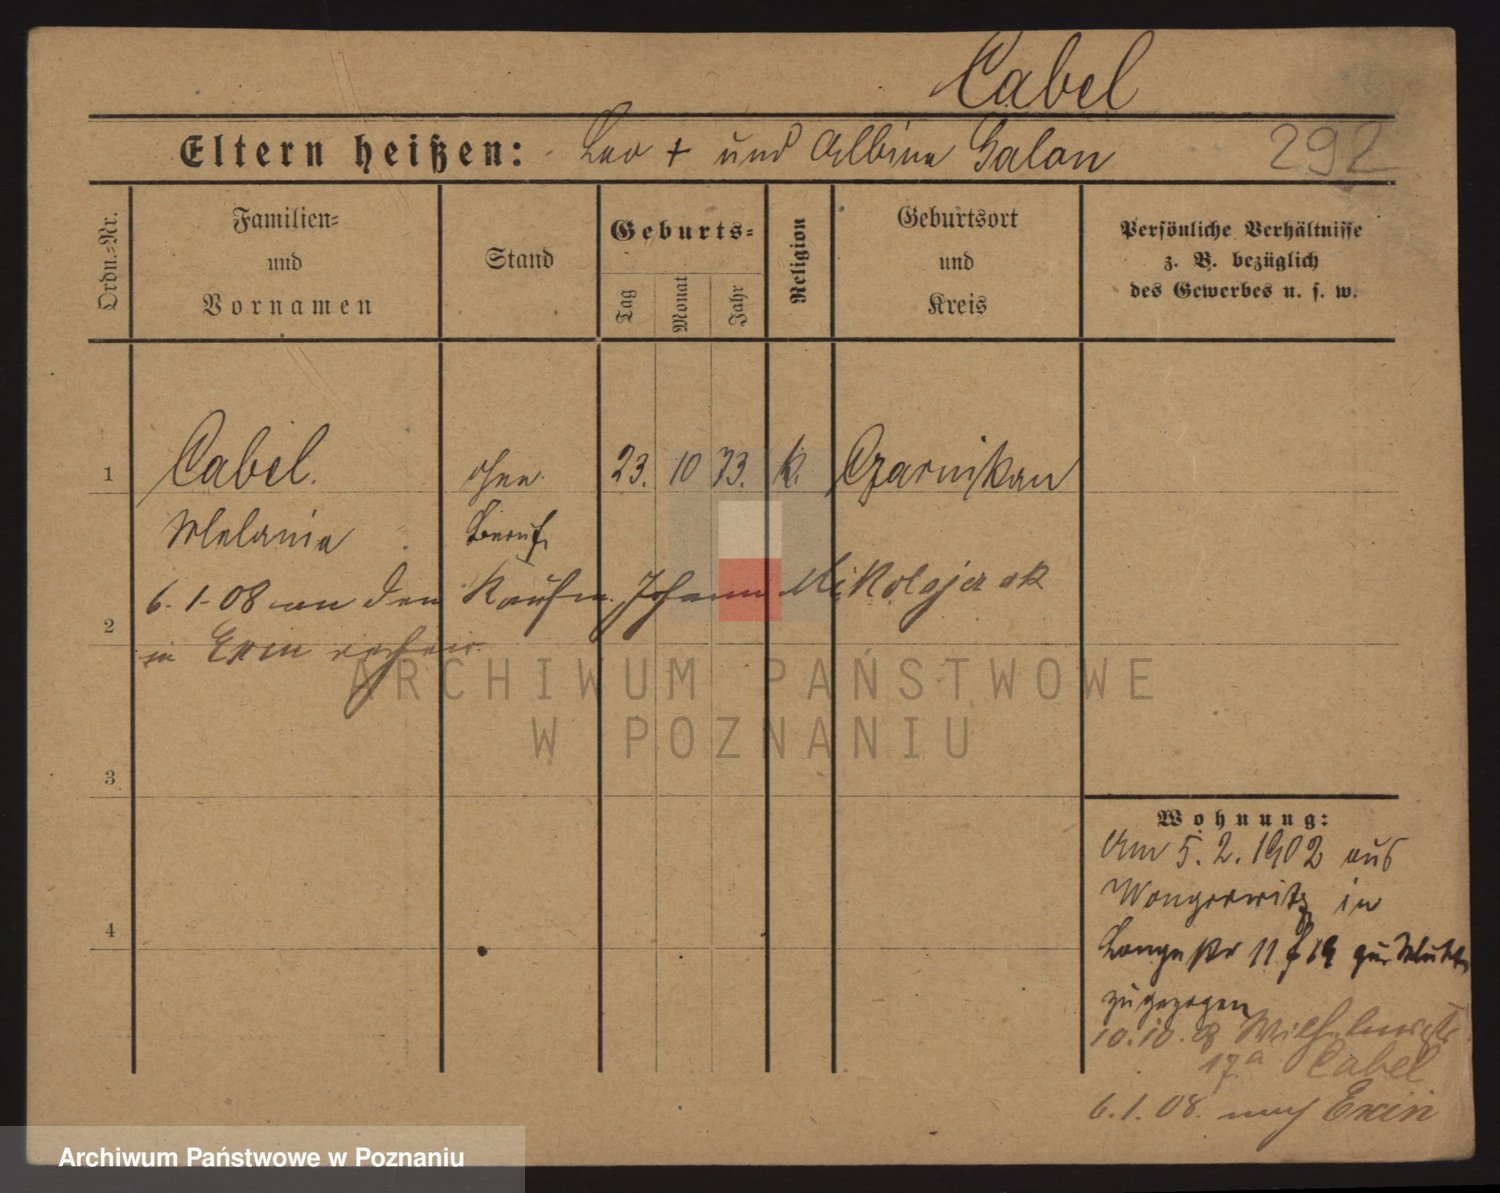 Cabel
Eltern heißen: Leo + und Albine Galon
292
Ordn.=Nr.
Familien=
und
Vornamen
Stand
Geburts=
Tag
Monat
Jahr
Religion
Geburtsort
und
Kreis
Persönliche Verhältnisse
z. B. bezüglich
des Gewerbes u. s. w.
1
Cabel. ohne 23. 10 73. k. Czarnikau
Melanie Beruf
6.1.08 an den Kaufm. Johann Mikolajczak
2
in Exin
3
4
Wohnung:
Am 5.2.1902 aus
Wongrowitz in
Langestr 11 zur Mutter
zugezogen
10.10. Wilhelmstr
17a Cabel
6.1.08. nach Exin
ARCHIWUM PAŃSTWOWE
W POZNANIU
Archiwum Państwowe w Poznaniu